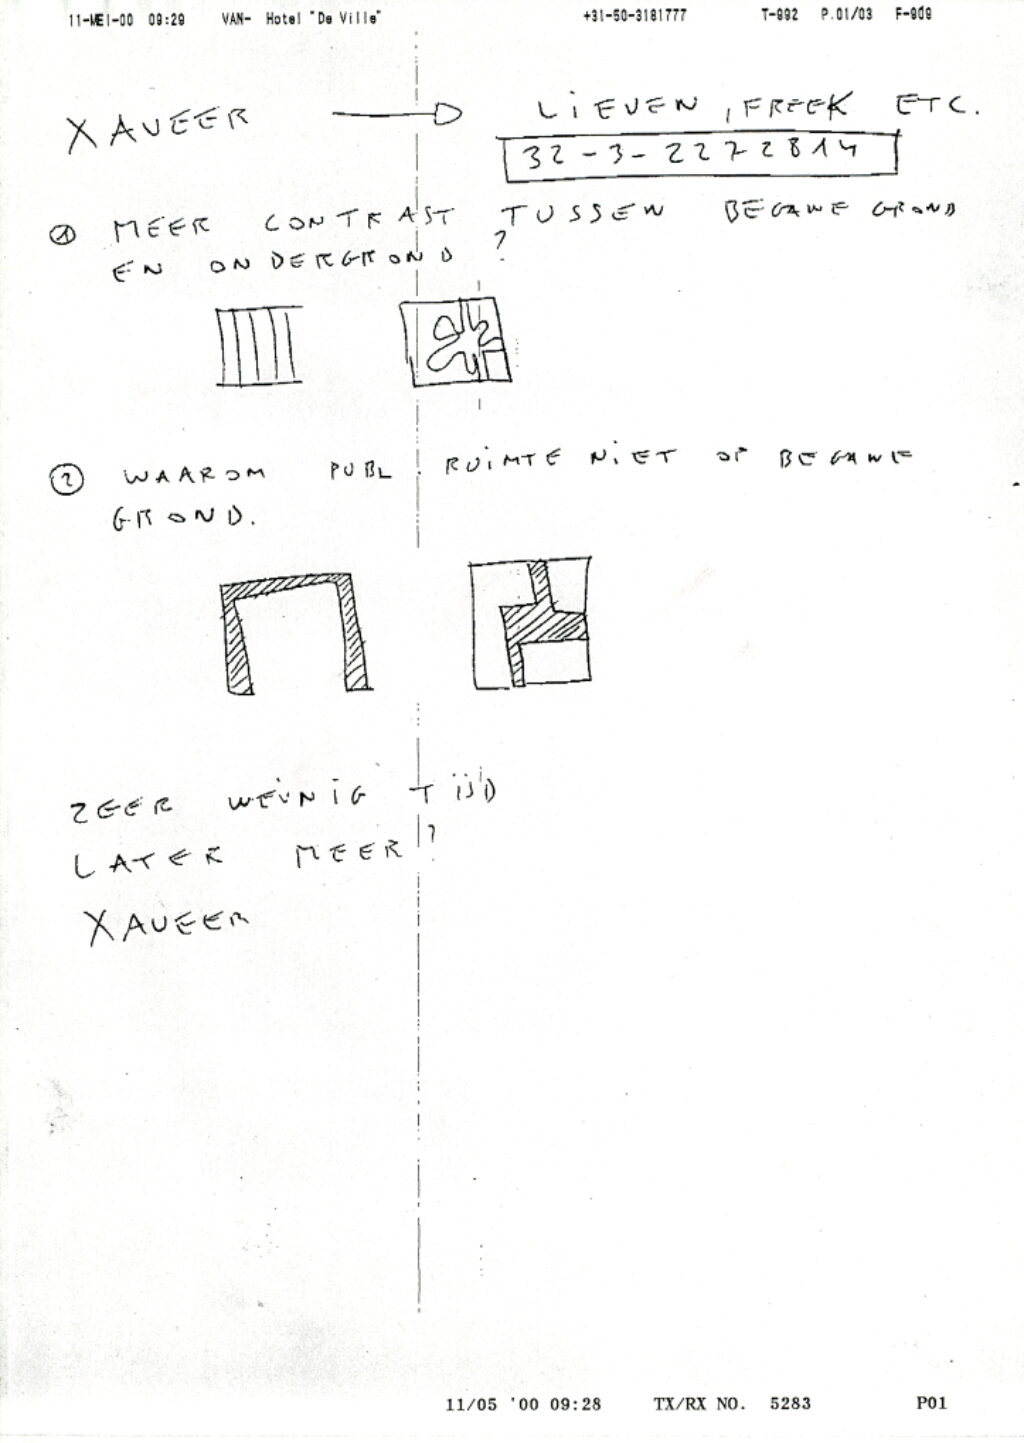 11-MEI-00 09:29 VAN- Hotel "De Ville" +31-50-3181777 T-992 P.01/03 F-909
XAVEER LIEVEN, FREEK ETC.
32-3-2272814
① MEER CONTRAST TUSSEN BEGANE GROND
EN ONDERGROND ?
② WAAROM PUBL. RUIMTE NIET OP BEGANE
GROND.
ZEER WEINIG TIJD
LATER MEER ?
XAVEER
11/05 '00 09:28 TX/RX NO. 5283 P01